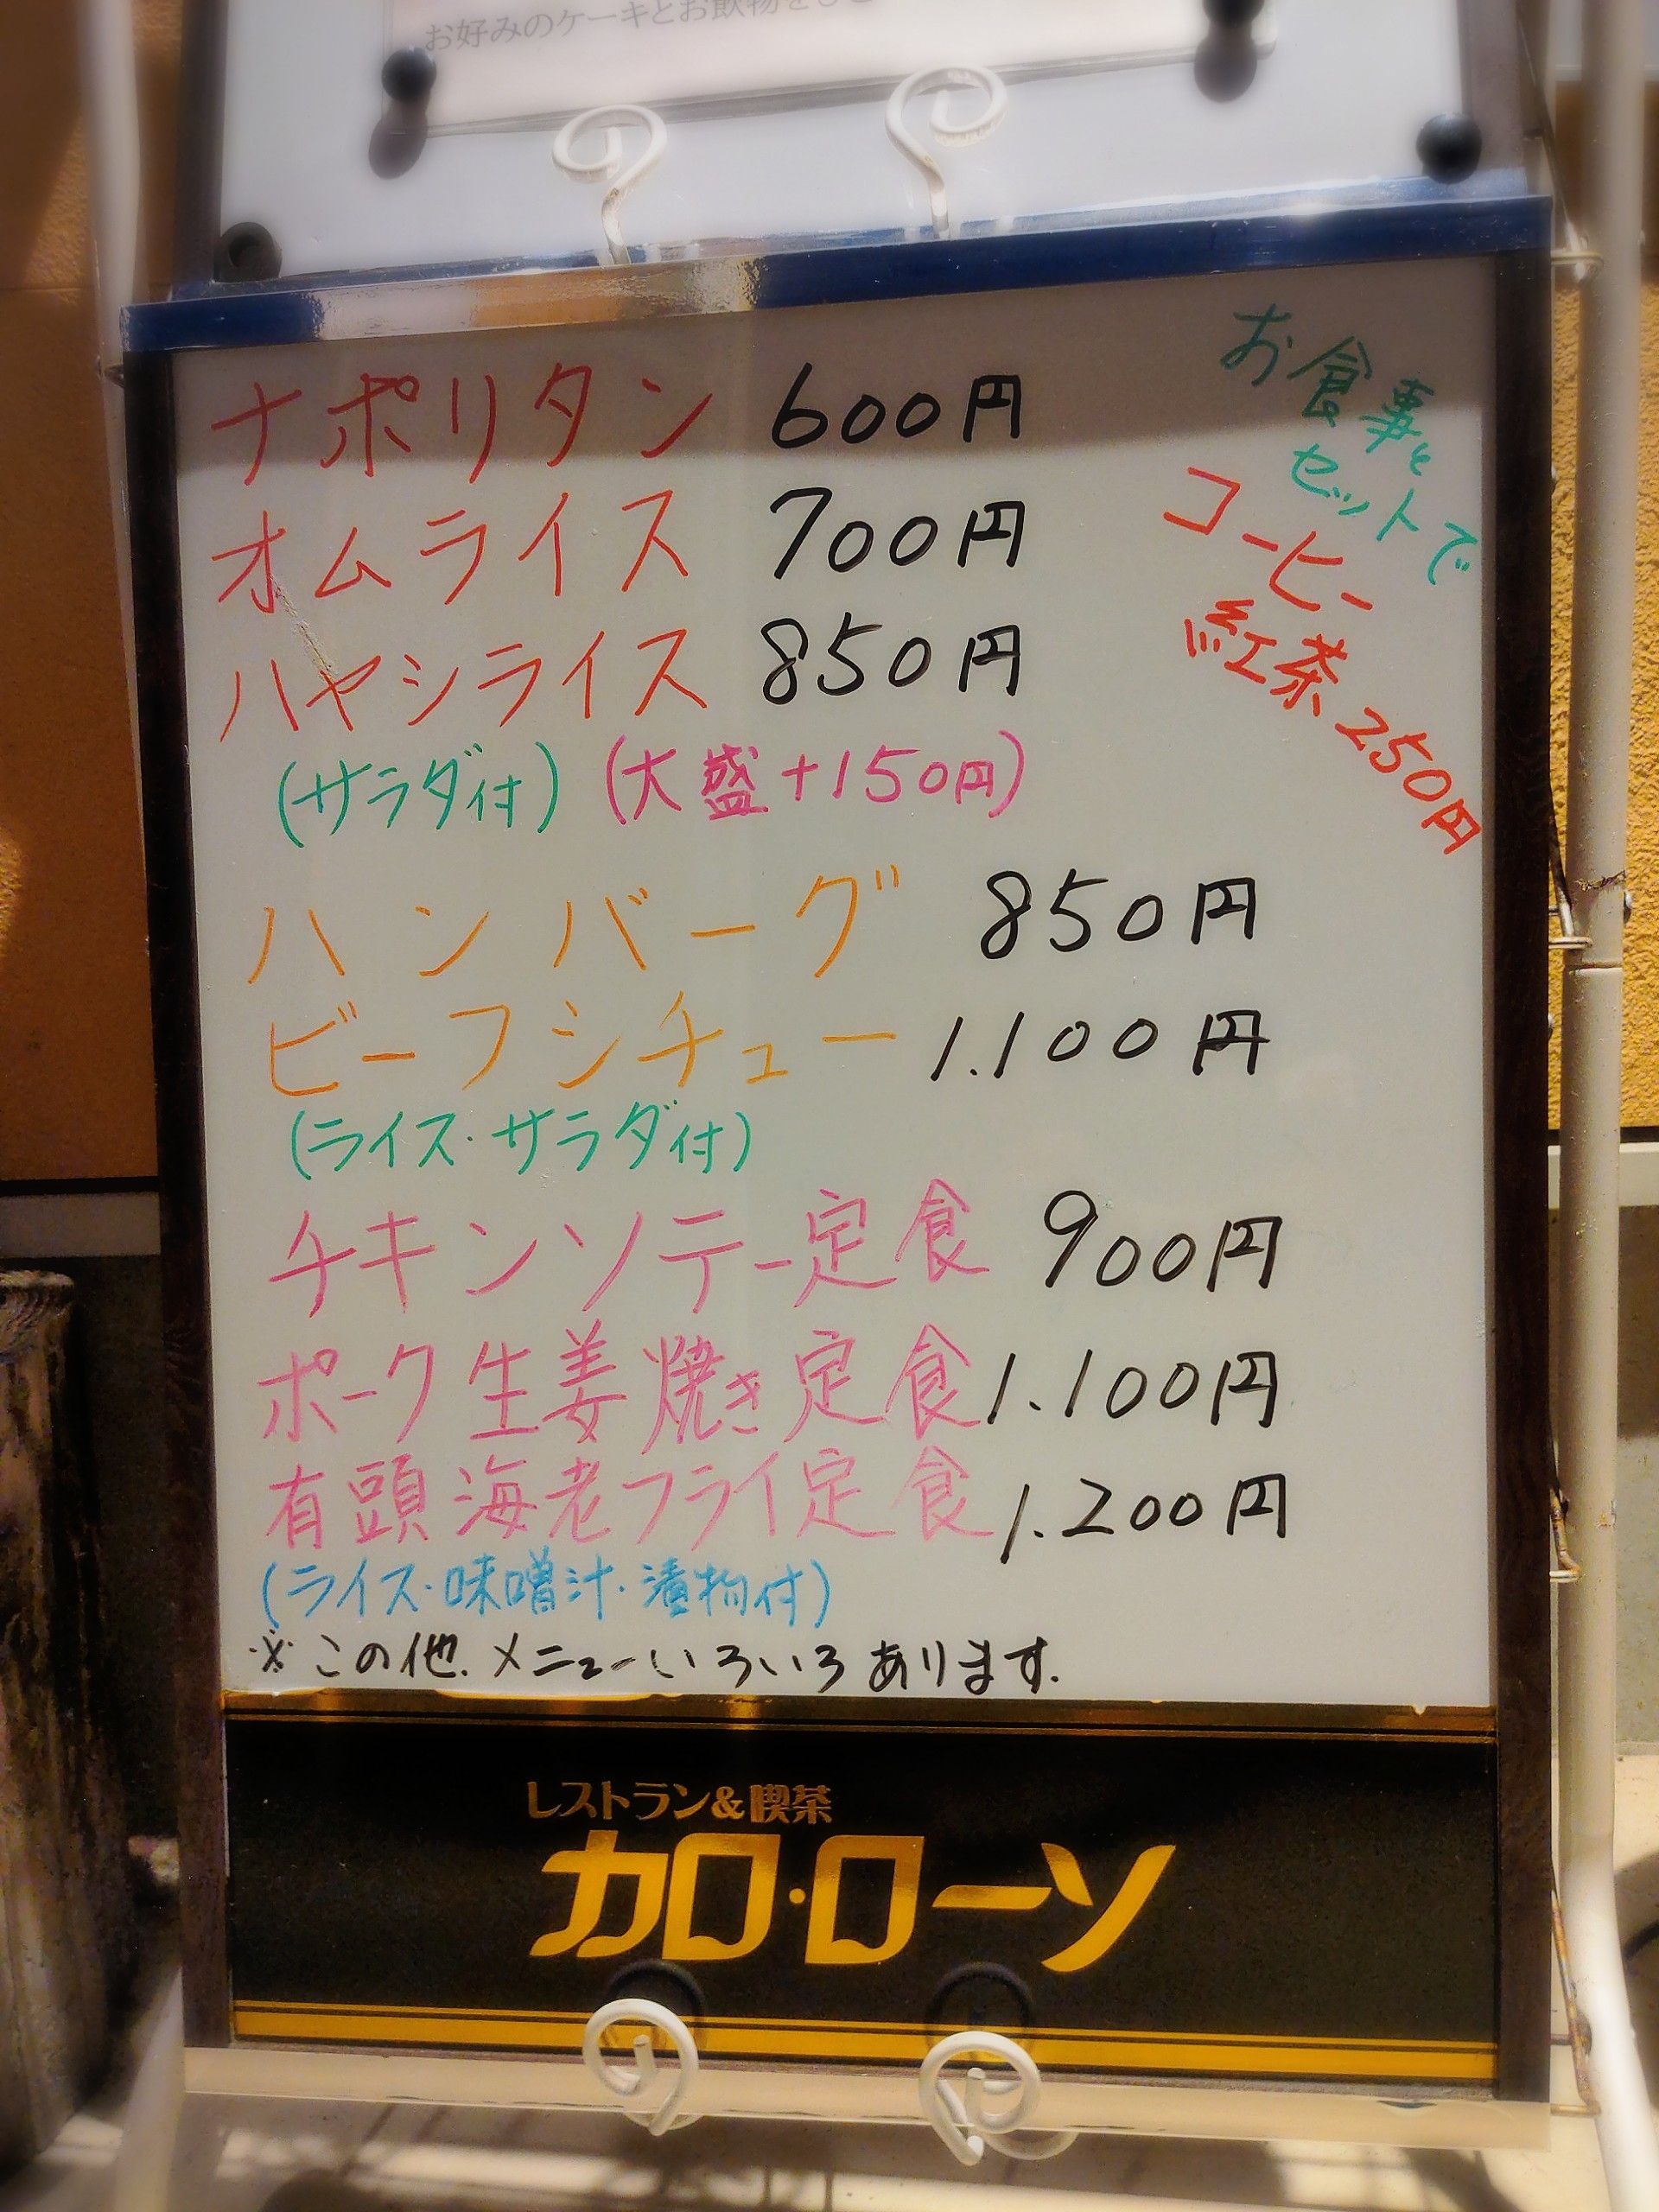 お好みのケーキとお飲物を
ナポリタン 600円
オムライス 700円
ハヤシライス 850円
(サラダ付) (大盛+150円)
お食事と
セットで
コーヒー
紅茶250円
ハンバーグ 850円
ビーフシチュー 1.100円
(ライス・サラダ付)
チキンソテー定食 900円
ポーク生姜焼き定食 1.100円
有頭海老フライ定食 1.200円
(ライス・味噌汁・漬物付)
※この他.メニューいろいろあります.
レストラン&喫茶
カロ・ローソ